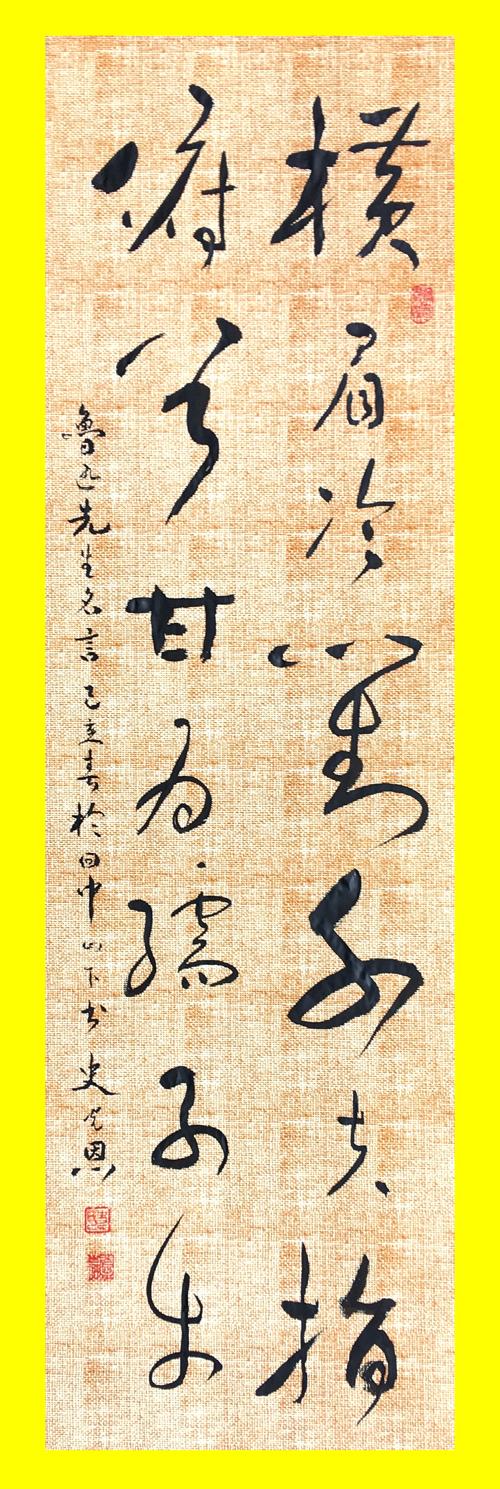 横眉冷對千夫指
俯首甘为孺子牛
魯迅先生名言己春於中山下书史恩